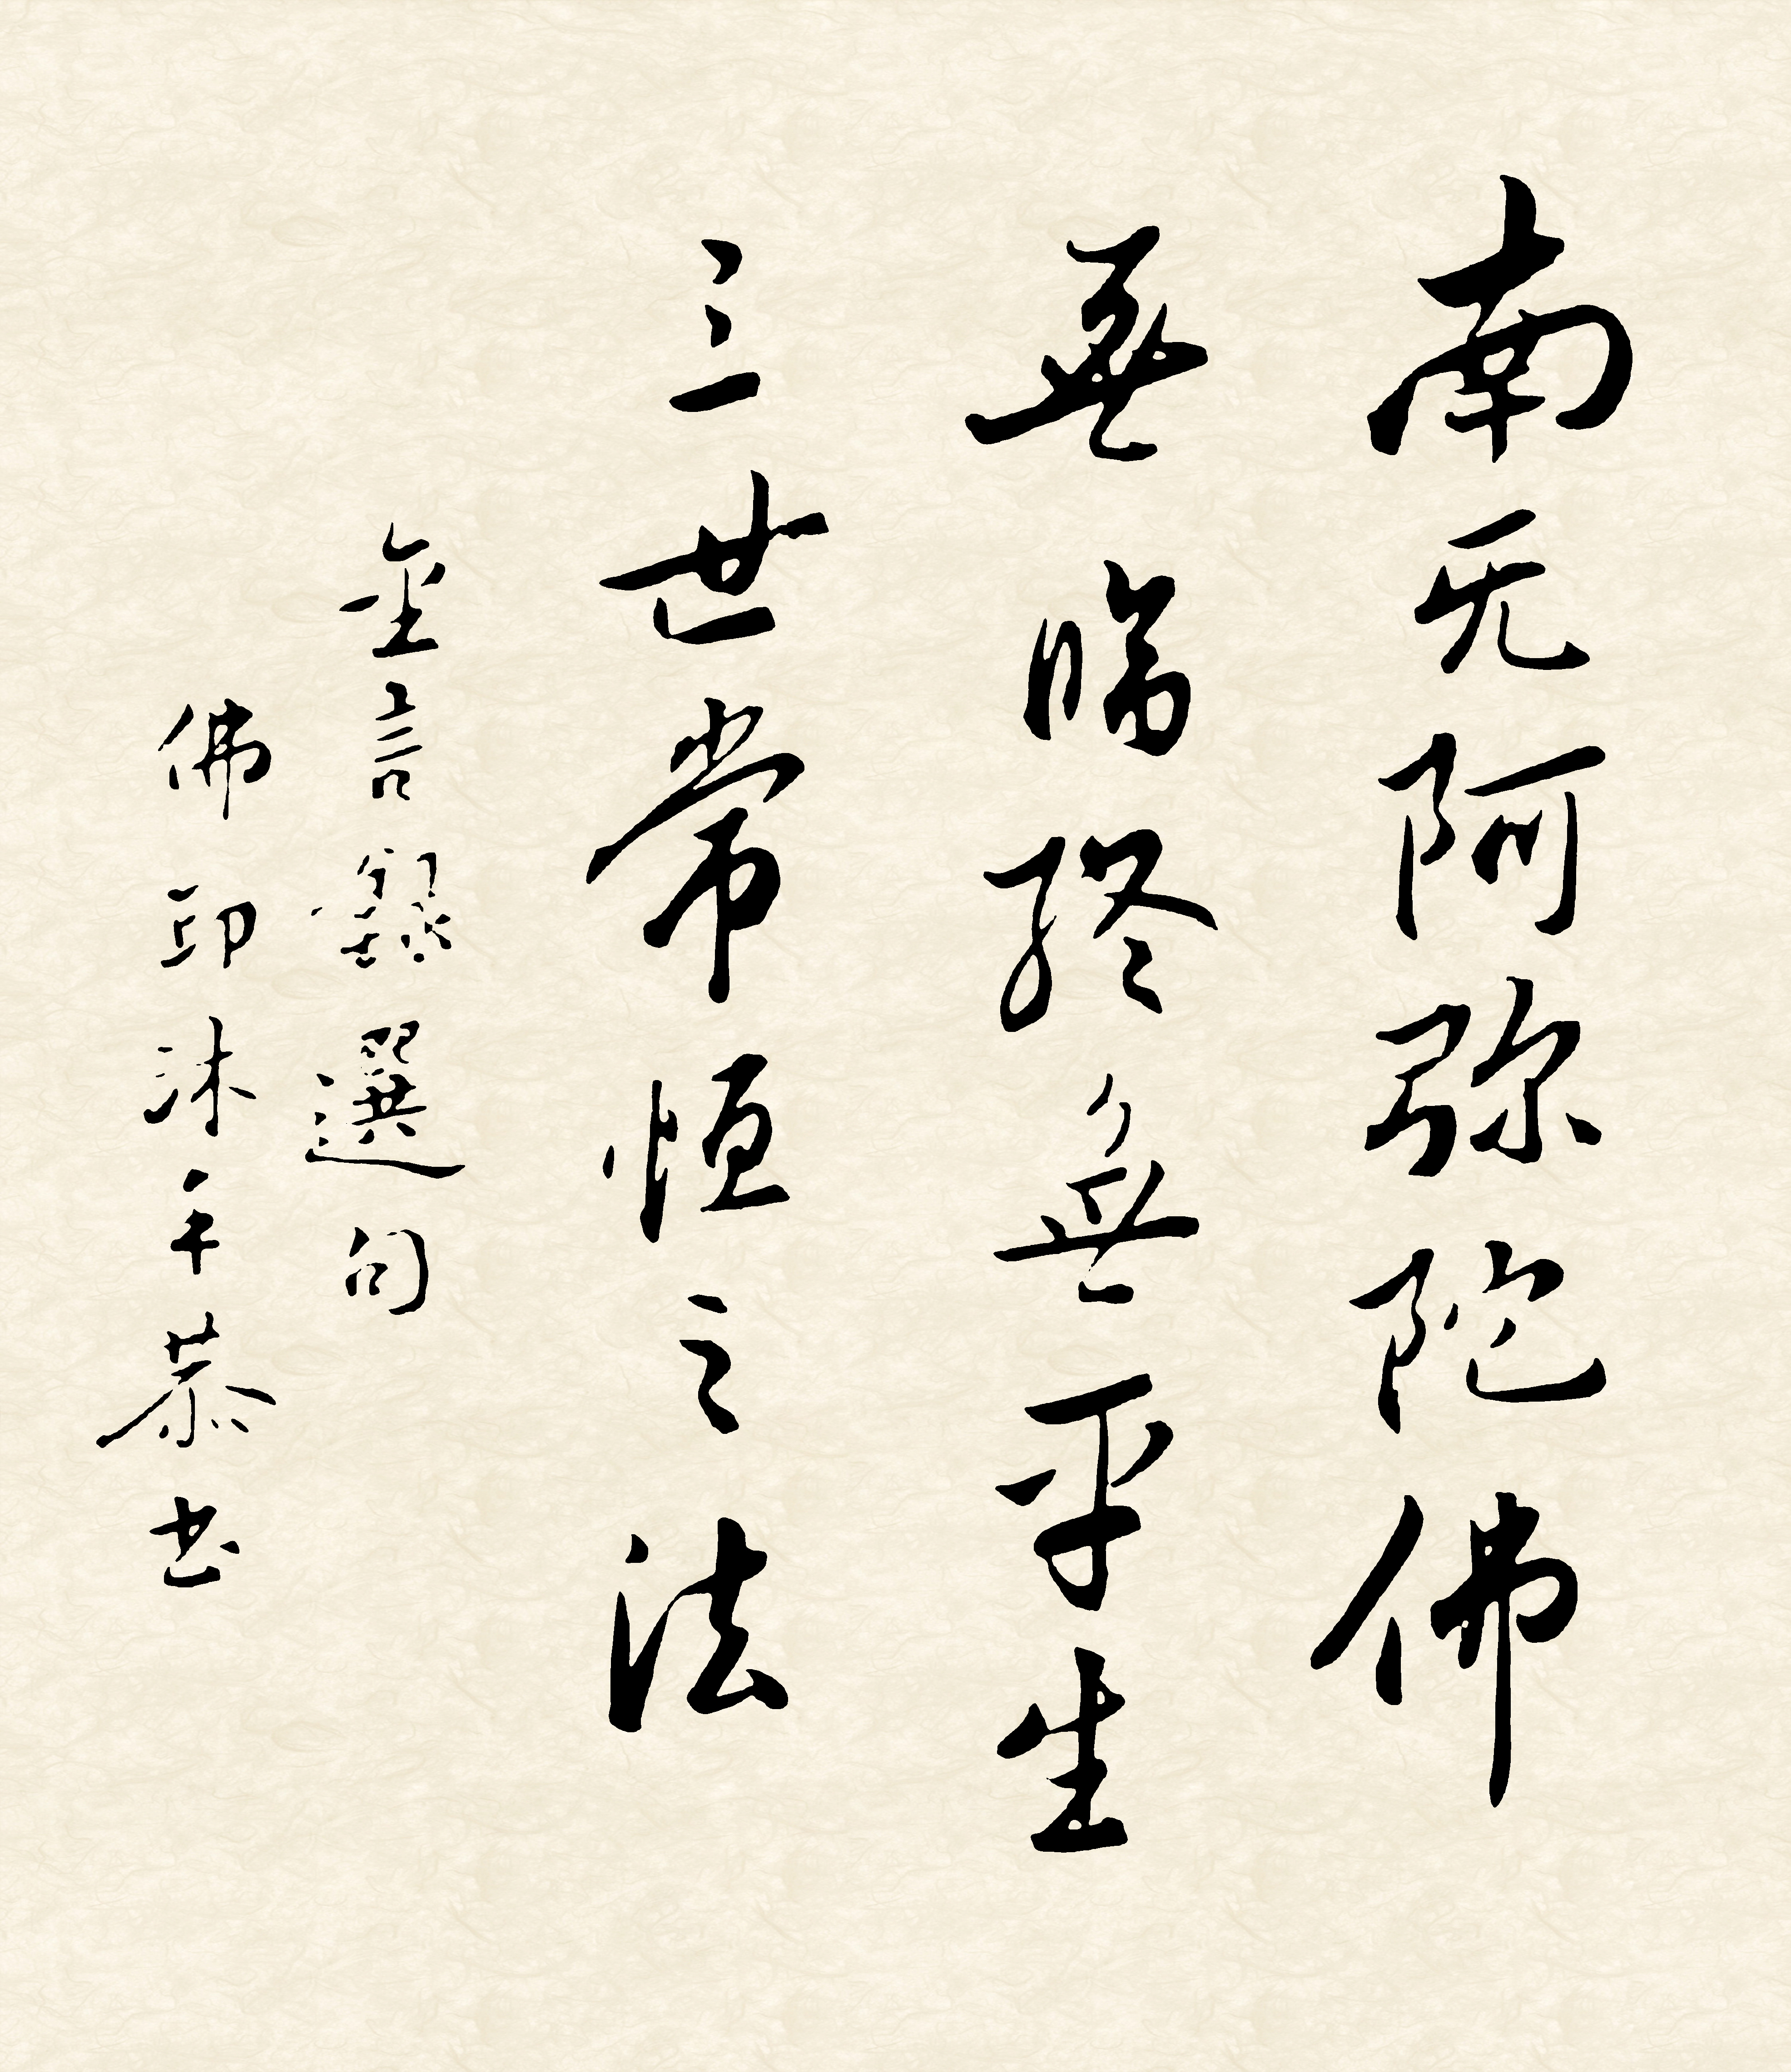 南无阿弥陀佛
無臨終無平生
三世常恒之法
金言錄選句
佛印沐手恭书